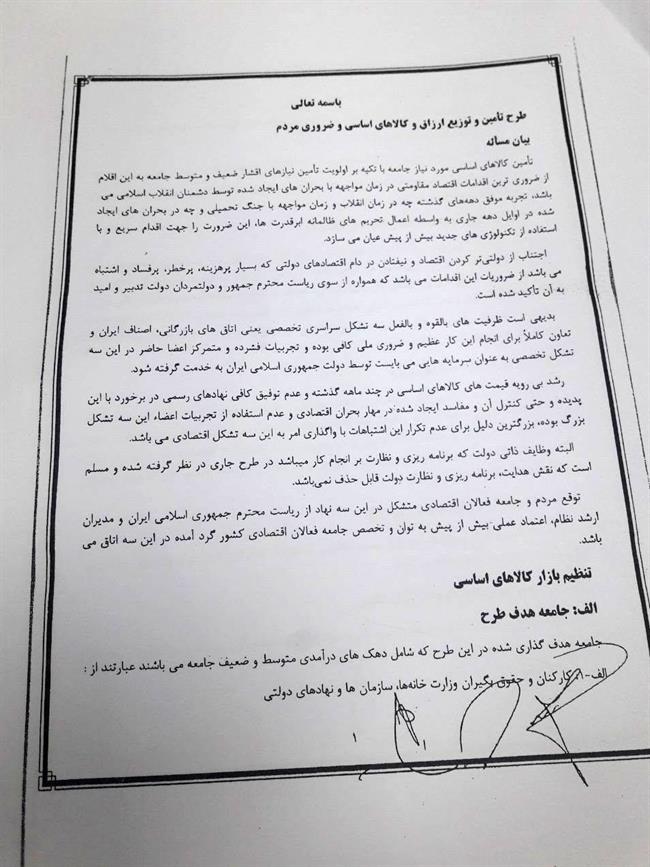 باسمه تعالی
طرح تأمین و توزیع ارزاق و کالاهای اساسی و ضروری مردم
بیان مسأله
تأمین کالاهای اساسی مورد نیاز جامعه با تکیه بر اولویت تأمین نیازهای اقشار ضعیف و متوسط جامعه به این اقلام
از ضروری ترین اقدامات اقتصاد مقاومتی در زمان مواجهه با بحران های ایجاد شده توسط دشمنان انقلاب اسلامی می
باشد، تجربه موفق دهه‌های گذشته چه در زمان انقلاب و زمان مواجهه با جنگ تحمیلی و چه در بحران های ایجاد
شده در اوایل دهه جاری به واسطه اعمال تحریم های ظالمانه ابرقدرت ها، این ضرورت را جهت اقدام سریع و با
استفاده از تکنولوژی های جدید بیش از پیش عیان می سازد.
اجتناب از دولتی‌تر کردن اقتصاد و نیفتادن در دام اقتصادهای دولتی که بسیار پرهزینه، پرخطر، پرفساد و اشتباه
می باشد از ضروریات این اقدامات می باشد که همواره از سوی ریاست محترم جمهور و دولتمردان دولت تدبیر و امید
به آن تأکید شده است.
بدیهی است ظرفیت های بالقوه و بالفعل سه تشکل سراسری تخصصی یعنی اتاق های بازرگانی، اصناف ایران و
تعاون کاملاً برای انجام این کار عظیم و ضروری ملی کافی بوده و تجربیات فشرده و متمرکز اعضا حاضر در این سه
تشکل تخصصی به عنوان سرمایه هایی می بایست توسط دولت جمهوری اسلامی ایران به خدمت گرفته شود.
رشد بی رویه قیمت های کالاهای اساسی در چند ماهه گذشته و عدم توفیق کافی نهادهای رسمی در برخورد با این
پدیده و حتی کنترل آن و مفاسد ایجاد شده در مهار بحران اقتصادی و عدم استفاده از تجربیات اعضاء این سه تشکل
بزرگ بوده، بزرگترین دلیل برای عدم تکرار این اشتباهات با واگذاری امر به این سه تشکل اقتصادی می باشد.
البته وظایف ذاتی دولت که برنامه ریزی و نظارت بر انجام کار میباشد در طرح جاری در نظر گرفته شده و مسلم
است که نقش هدایت، برنامه ریزی و نظارت دولت قابل حذف نمی‌باشد.
توقع مردم و جامعه فعالان اقتصادی متشکل در این سه نهاد از ریاست محترم جمهوری اسلامی ایران و مدیران
ارشد نظام، اعتماد عملی بیش از پیش به توان و تخصص جامعه فعالان اقتصادی کشور گرد آمده در این سه اتاق می
باشد.
تنظیم بازار کالاهای اساسی
الف: جامعه هدف طرح
جامعه هدف گذاری شده در این طرح که شامل دهک های درآمدی متوسط و ضعیف جامعه می باشند عبارتند از :
الف-۱: کارکنان و حقوق بگیران وزارت خانه‌ها، سازمان ها و نهادهای دولتی
۱